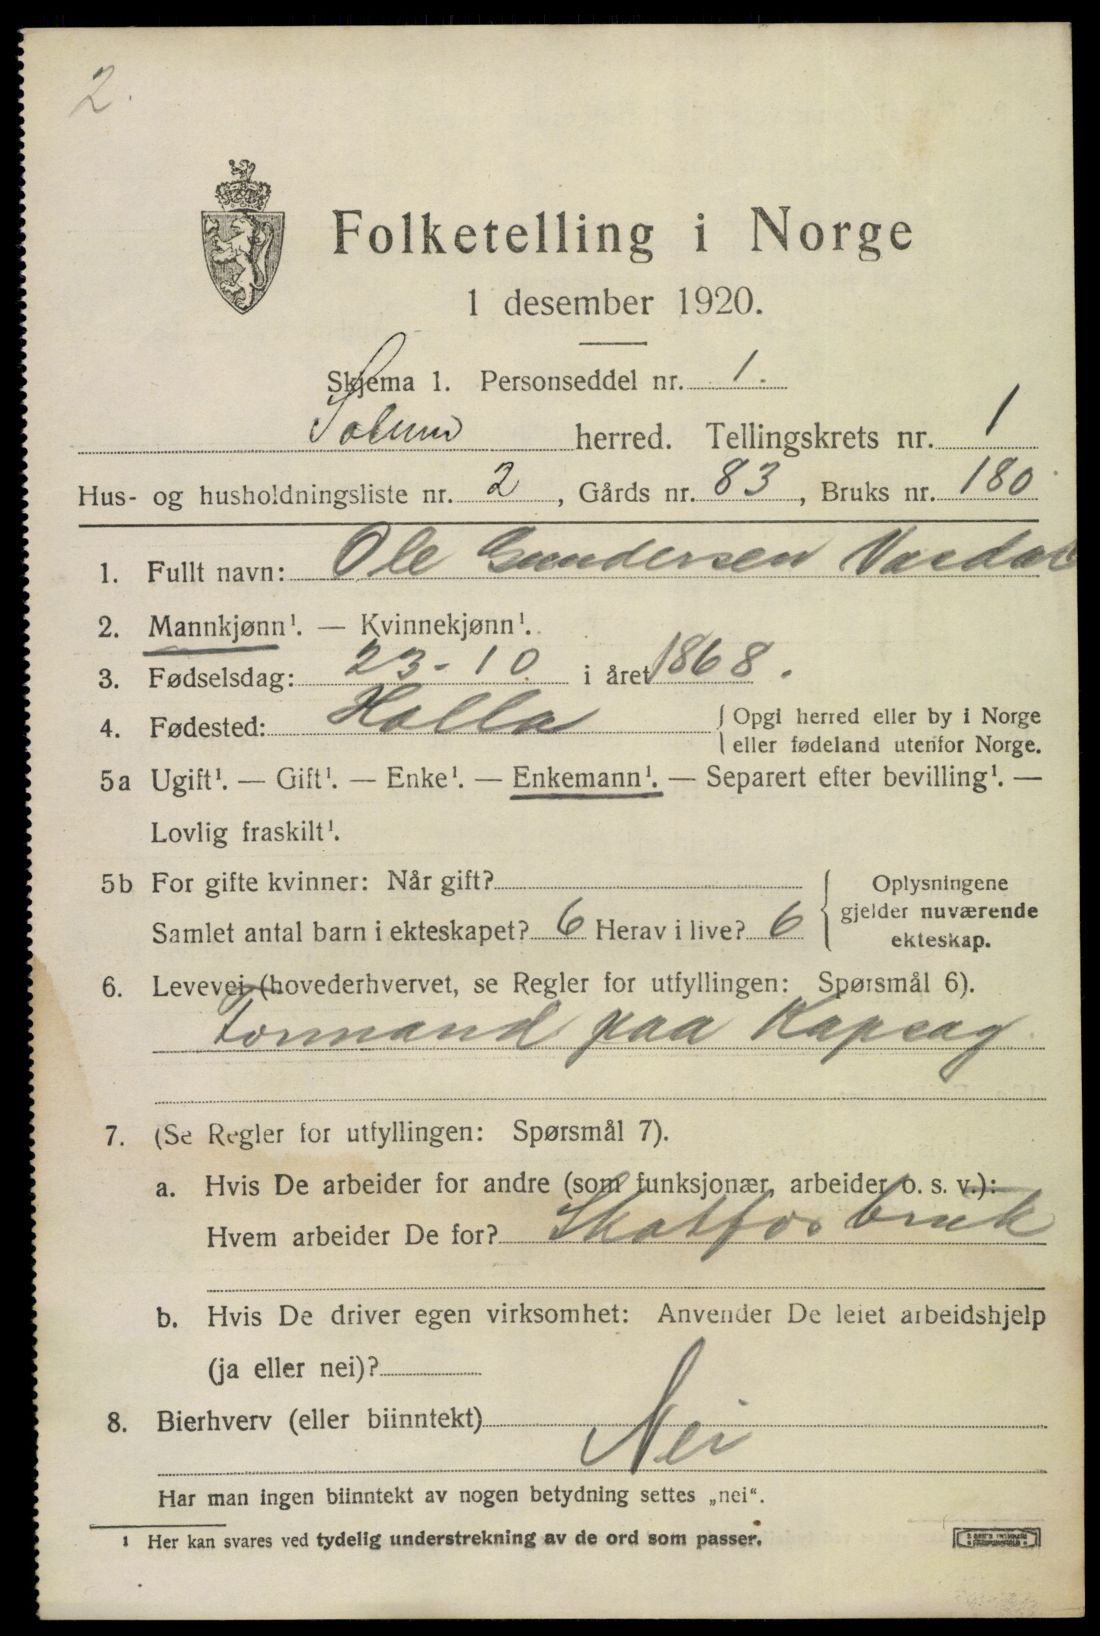 2.
Folketelling i Norge
1 desember 1920.
Skjema 1. Personseddel nr. 1.
Solum herred. Tellingskrets nr. 1
Hus- og husholdningsliste nr. 2, Gårds nr. 83, Bruks nr. 180
1. Fullt navn: Ole Gundersen Vardal
2. Mannkjønn¹. — Kvinnekjønn¹.
3. Fødselsdag: 23-10 i året 1868.
4. Fødested: Holla { Opgi herred eller by i Norge
eller fødeland utenfor Norge.
5a Ugift¹. — Gift¹. — Enke¹. — Enkemann¹. — Separert efter bevilling¹. —
Lovlig fraskilt¹.
5b For gifte kvinner: Når gift?
Samlet antal barn i ekteskapet? 6 Herav i live? 6
{ Oplysningene
gjelder nuværende
ekteskap.
6. Levevei (hovederhvervet, se Regler for utfyllingen: Spørsmål 6).
Formand paa Kapsag
7. (Se Regler for utfyllingen: Spørsmål 7).
a. Hvis De arbeider for andre (som funksjonær, arbeider o. s. v.):
Hvem arbeider De for? Skotfos bruk
b. Hvis De driver egen virksomhet: Anvender De leiet arbeidshjelp
(ja eller nei)?
8. Bierhverv (eller biinntekt) Nei
Har man ingen biinntekt av nogen betydning settes „nei“.
¹ Her kan svares ved tydelig understrekning av de ord som passer.